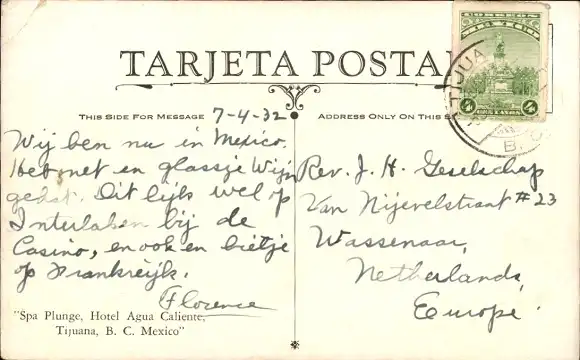 TARJETA POSTAL
THIS SIDE FOR MESSAGE
ADDRESS ONLY ON THIS S
7-4-32
Wij ben nu in Mexico.
Heb met en glassje Wijn
gedat. Dit lijk wel op
Interlaken bij de
Casino, en ook en bietje
op Frankreijk.
Florence
"Spa Plunge, Hotel Agua Caliente,
Tijuana, B. C. Mexico"
Rev. J. H. Geselschap
Van Nijevelstraat #23
Wassenaar,
Netherlands,
Europe.
TIJUA
B.
4
4